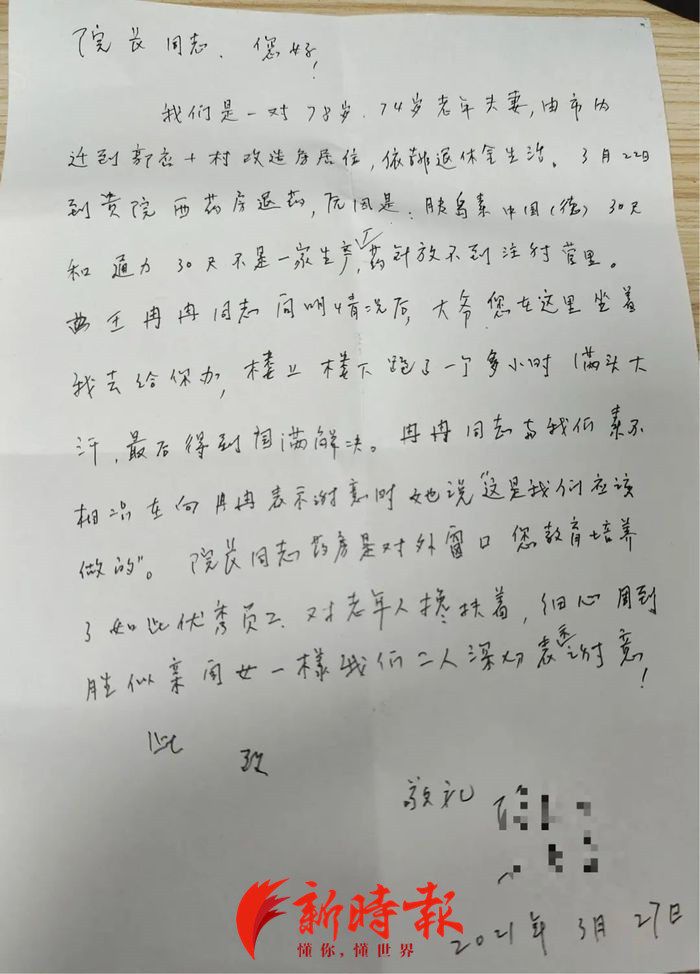 院长同志、您好!
我们是一对78岁.74岁老年夫妻,由市内
迁到郭店+村改造房居住,依靠退休金生活。3月22日
到贵院西药房退药,原因是:胰岛素中国(德)30只
和通力30只不是一家生产,药针放不到注射管里。
王冉冉同志问明情况后,大爷您在这里坐着
我去给你办,楼上楼下跑了一个多小时 满头大
汗,最后得到圆满解决。冉冉同志与我们素不
相识在向冉冉表示谢意时她说"这是我们应该
做的"。院长同志药房是对外窗口 您教育培养
了如此优秀员工.对老年人搀扶着,细心周到
胜似亲闺女一樣我们二人深切表达谢意!
此 致
敬礼
2021年3月27日
新時報
懂你,懂世界